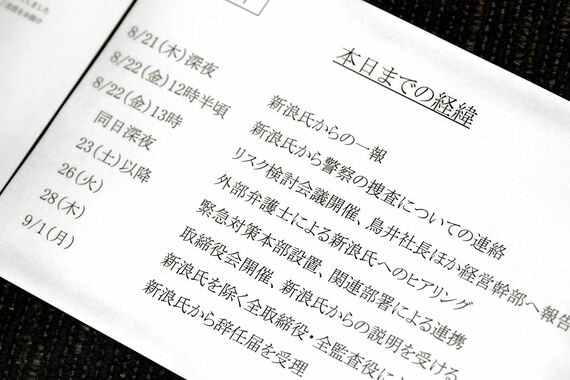 本日までの経緯
8/21(木)深夜 新浪氏からの一報
8/22(金)12時半頃 新浪氏から警察の捜査についての連絡
8/22(金)13時 リスク検討会議開催、鳥井社長ほか経営幹部へ報告
同日深夜 外部弁護士による新浪氏へのヒアリング
23(土)以降 緊急対策本部設置、関連部署による連携
26(火) 取締役会開催、新浪氏からの説明を受ける
28(木) 新浪氏を除く全取締役・全監査役に
9/1(月) 新浪氏から辞任届を受理